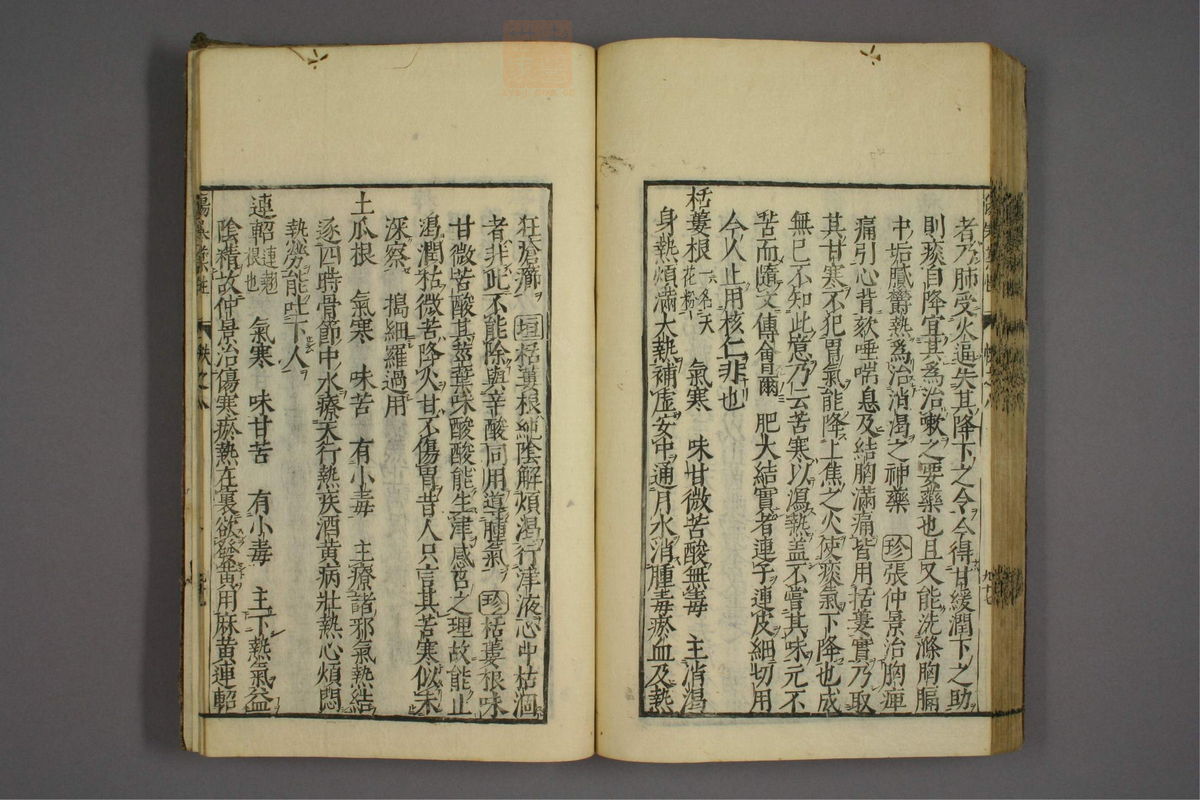 者乃肺受火逼失其降下之令今得甘緩潤下之助
則痰自降宜其爲治嗽之要藥也且又能洗滌胸膈
中垢膩鬱熱爲治消渴之神藥 珍張仲景治胸痺
痛引心背欬唾喘息及結胸滿痛皆用括蔞實乃取
其甘寒不犯胃氣能降上焦之火使痰氣下降也成
無已不知此意乃云苦寒以瀉熱盖不嘗其味元不
苦而隨文傳會爾 肥大結實者連子連皮細切用
今人止用核仁非也
栝蔞根一名天花粉 氣寒 味甘微苦酸無毒 主消渴
身熱煩滿大熱補虛安中通月水消腫毒瘀血及熱
狂瘡癤 垣栝蔞根純陰解煩渴行津液心中枯涸
者非此不能除與辛酸同用導腫氣 珍栝蔞根味
甘微苦酸其莖葉味酸酸能生津感召之理故能止
渴潤枯微苦降火甘不傷胃昔人只言其苦寒似未
深察 搗細羅過用
土瓜根 氣寒 味苦 有小毒 主療諸邪氣熱結
逐四時骨節中水療天行熱疾酒黄病壯熱心煩悶
熱勞能吐下人
連軺連翹根也 氣寒 味甘苦 有小毒 主下熱氣益
陰精故仲景治傷寒瘀熱在裏欲發黄用麻黄連軺